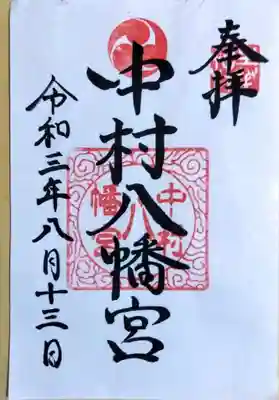 奉拝
中村八幡宮
中村
八
幡宮
令和三年八月十三日